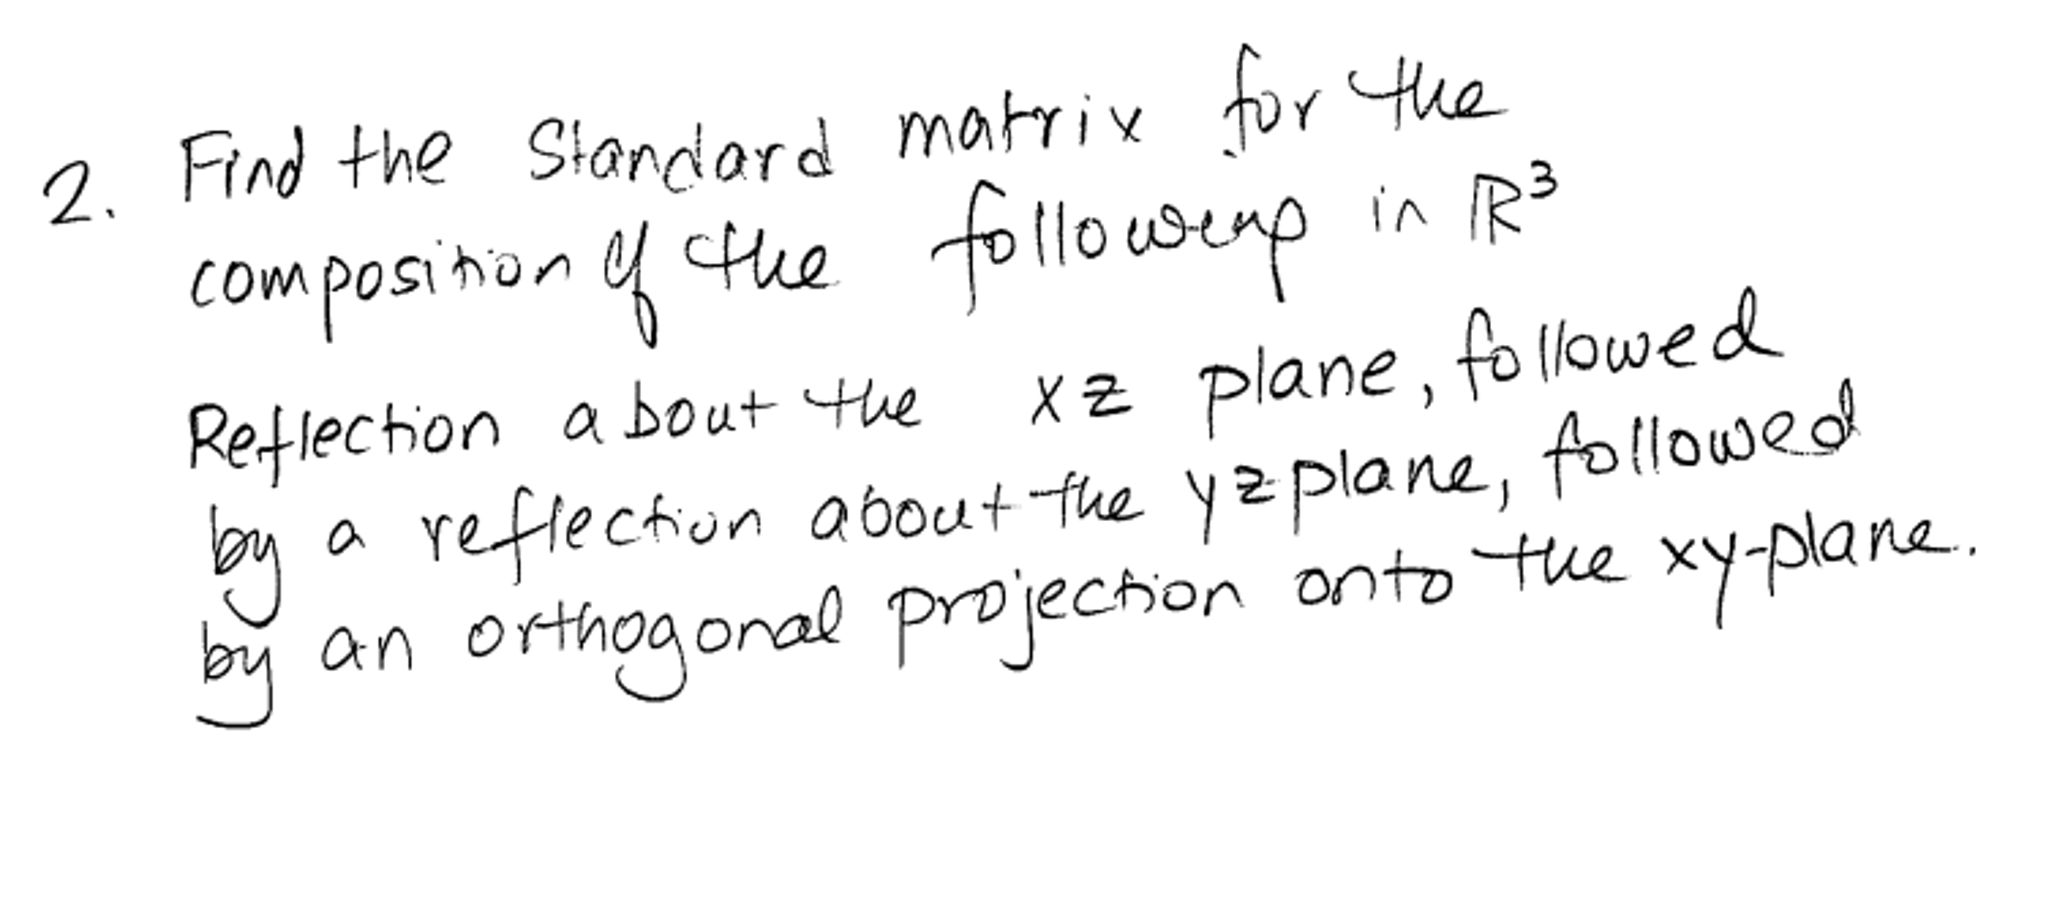 2. Find the Standard matrix for the
composition of the following in ℝ³
Reflection about the xz plane, followed
by a reflection about the yz plane, followed
by an orthogonal projection onto the xy-plane.